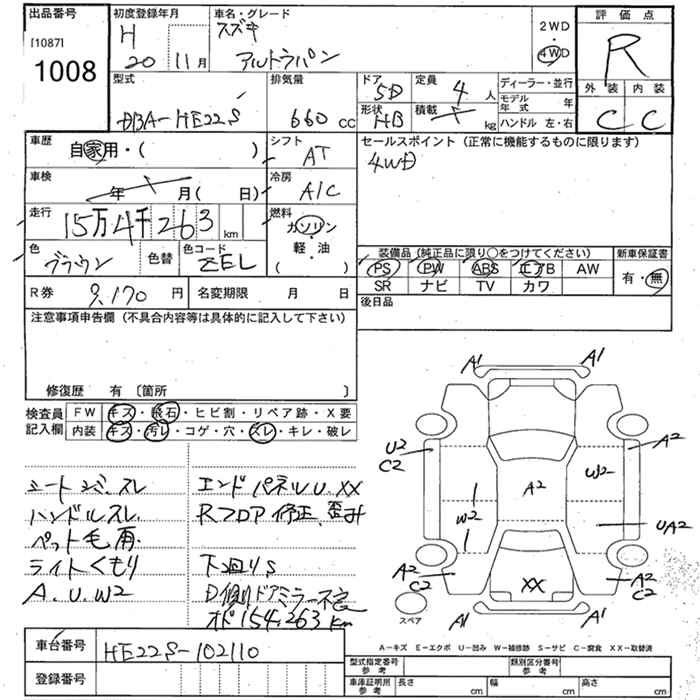 出品番号
[1087]
1008
初度登録年月
H
20 11月
車名・グレード
スズキ
アルトラパン
2WD
・
4WD
評価点
R
外装 内装
C C
型式
DBA-HE22S
排気量
660 cc
ドア
5D
定員
4 人
形状
HB
積載
kg
ディーラー・並行
モデル年式 年
ハンドル 左・右
車歴
自家用・( )
シフト
AT
セールスポイント (正常に機能するものに限ります)
4WD
車検
年 月( 日)
冷房
A/C
走行
15万4千263 km
燃料
ガソリン
・
軽・油
( )
色
ブラウン
色替
色コード
ZEL
装備品 (純正品に限り○をつけてください)
PS PW ABS エアB AW
SR ナビ TV カワ
新車保証書
有・無
R券
9,170 円
名変期限 月 日
後日品
注意事項申告欄 (不具合内容等は具体的に記入して下さい)
修復歴 有 〔箇所 〕
検査員
記入欄
FW キズ・飛石・ヒビ割・リペア跡・X要
内装 キズ・汚レ・コゲ・穴・スレ・キレ・破レ
シートシミ.スレ
ハンドルスレ.
ペット毛有.
ライトくもり
A.U.W2
エンドパネルU.XX
Rフロア修正、歪み
下廻りS
D側ドアミラー不完
オド154,263km
A1 A1
U2
C2
A2
W2
A2
W2
UA2
A2
C2
XX
A2
C2
A1 A1
スペア
A-キズ E-エクボ U-凹み W-補修跡 S-サビ C-腐食 XX-取替済
車台番号
HE22S-102110
登録番号
型式指定番号
参考
類別区分番号
参考
車庫証明用
参考
長さ cm
幅 cm
高さ cm